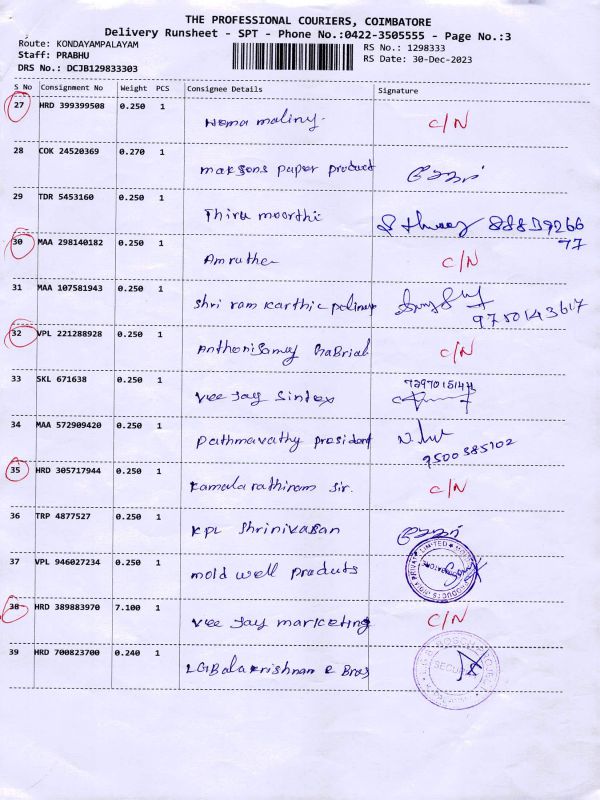 THE PROFESSIONAL COURIERS, COIMBATORE
Delivery Runsheet - SPT - Phone No.:0422-3505555 - Page No.:3
Route: KONDAYAMPALAYAM
RS No.: 1298333
Staff: PRABHU
RS Date: 30-Dec-2023
DRS No.: DCJB129833303
S No Consignment No Weight PCS Consignee Details Signature
27 HRD 399399508 0.250 1 Hema maliny. C/N
28 COK 24520369 0.270 1 maksons paper product
29 TDR 5453160 0.250 1 Thiru moorthi
30 MAA 298140182 0.250 1 Amrutha C/N
31 MAA 107581943 0.250 1 shri ram karthic 9750143617
32 VPL 221288928 0.250 1 Anthonisamy Gabrial C/N
33 SKL 671638 0.250 1 Vee Jay Sintex
34 MAA 572909420 0.250 1 pathmavathy president
9500385102
35 HRD 305717944 0.250 1 Kamala rathinam sir. C/N
36 TRP 4877527 0.250 1 KPL Shrinivasan
37 VPL 946027234 0.250 1 mold well produts
38 HRD 389883970 7.100 1 Vee Jay marketing C/N
39 HRD 700823700 0.240 1 LGBalakrishnan & Bros
SECURITY